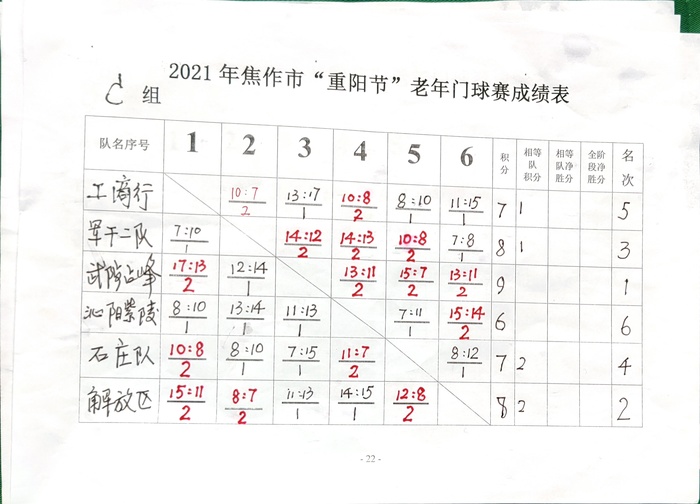 2021年焦作市“重阳节”老年门球赛成绩表
C 组
队名序号 1 2 3 4 5 6 积分 相等队积分 相等队净胜分 全阶段净胜分 名次
工商行 10:7/2 13:17/1 10:8/2 8:10/1 11:15/1 7 1 5
军干二队 7:10/1 14:12/2 14:13/2 10:8/2 7:8/1 8 1 3
武陟占峰 17:13/2 12:14/1 13:11/2 15:7/2 13:11/2 9 1
沁阳紫陵 8:10/1 13:14/1 11:13/1 7:11/1 15:14/2 6 6
石庄队 10:8/2 8:10/1 7:15/1 11:7/2 8:12/1 7 2 4
解放区 15:11/2 8:7/2 11:13/1 14:15/1 12:8/2 8 2 2
- 22 -